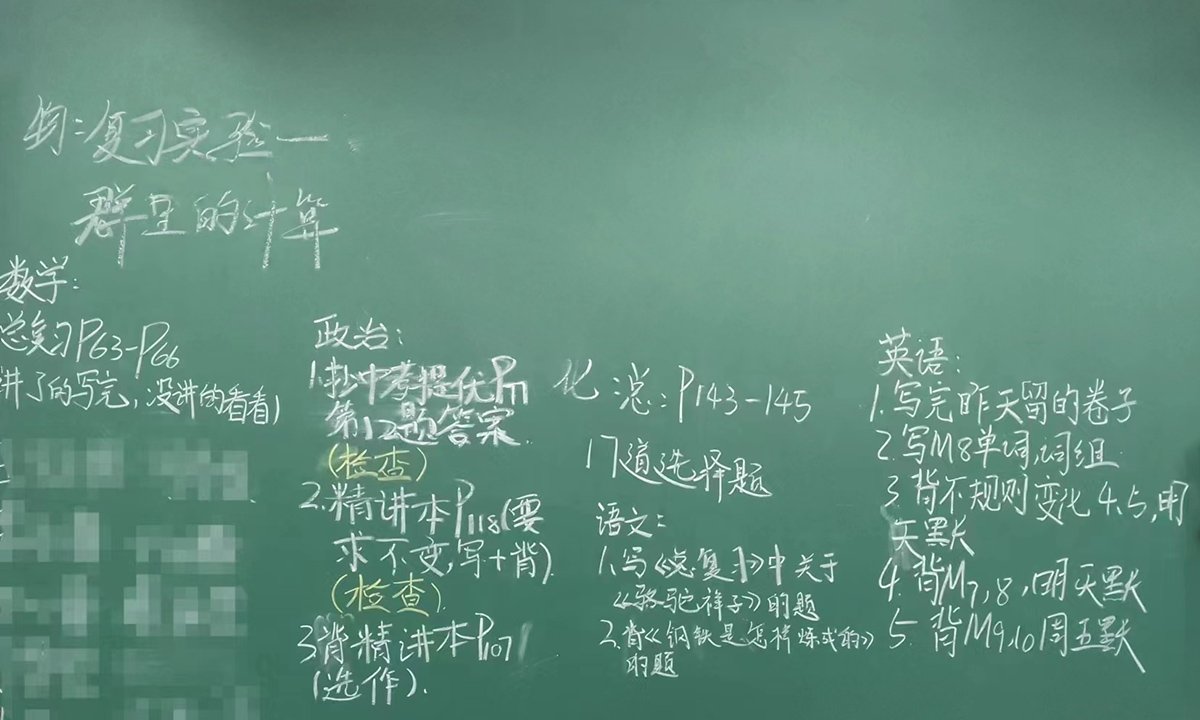 物:复习实验一
群里的计算
数学:
总复习P63-P66
讲了的写完,没讲的看看)
政治:
1.抄中考提优P111
第12题答案.
(检查)
2.精讲本P118(要
求不变,写+背).
(检查).
3背精讲本P107
(选作).
化:总:P143-145
17道选择题
语文:
1.写《总复习》中关于
《骆驼祥子》的题
2.背《钢铁是怎样炼成的》
的题
英语:
1.写完昨天留的卷子
2.写M8单词,词组
3.背不规则变化4.5,明
天默
4.背M7,8,明天默
5.背M9.10周五默